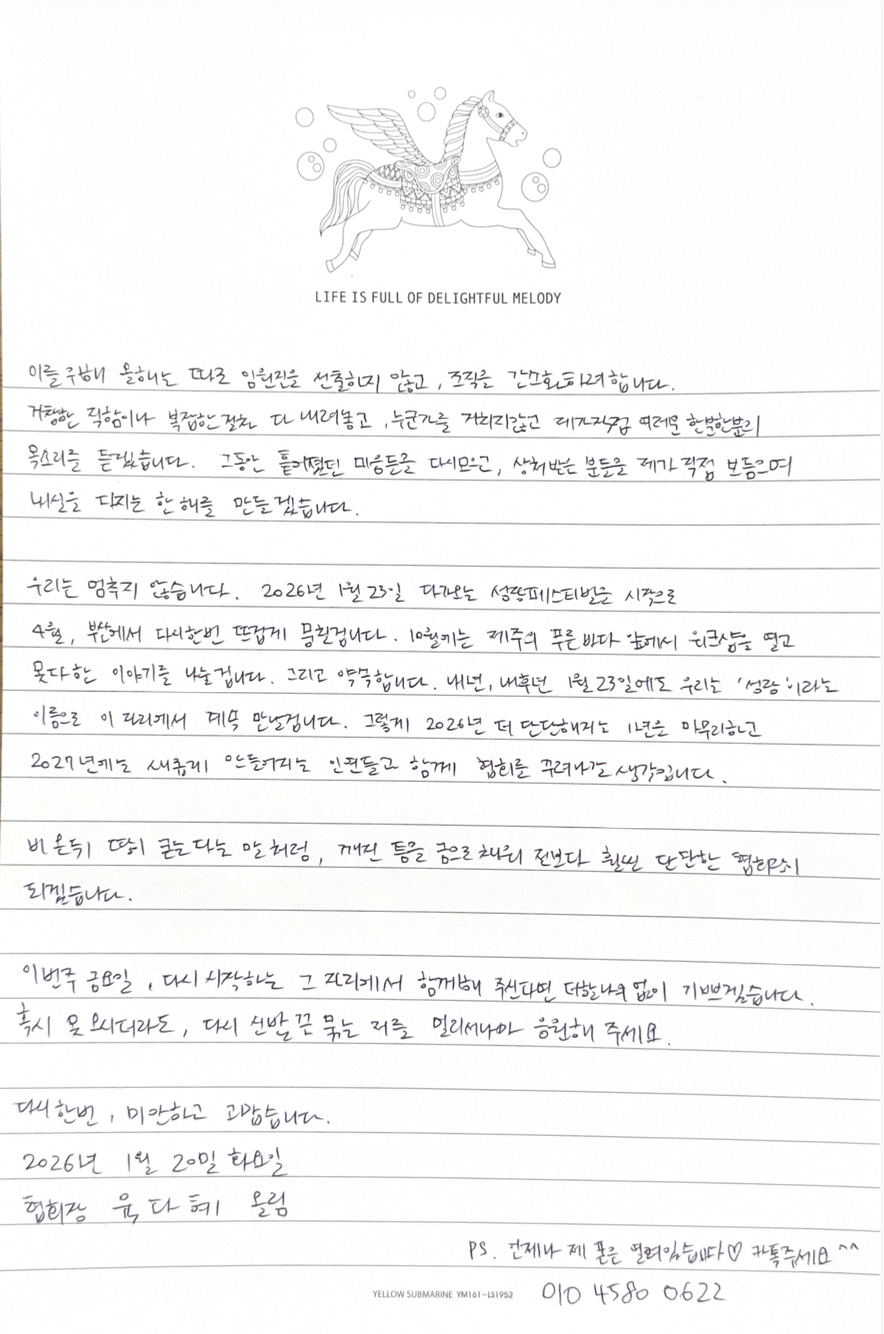 LIFE IS FULL OF DELIGHTFUL MELODY
이를 위해 올해는 따로 임원진을 선출하지 않고, 조직을 간소화하려 합니다.
거창한 직함이나 복잡한 절차 다 내려놓고, 누군가를 거치지않고 제가직접 여러분 한분한분의
목소리를 듣겠습니다. 그동안 흩어졌던 마음들을 다시모으고, 상처받은 분들을 제가 직접 보듬으며
내실을 다지는 한 해를 만들겠습니다.
우리는 멈추지 않습니다. 2026년 1월 23일 다가오는 성장페스티벌을 시작으로
4월, 부산에서 다시한번 뜨겁게 뭉칠겁니다. 10월에는 제주의 푸른 바다 앞에서 워크샵을 열고
못다한 이야기를 나눌겁니다. 그리고 약속합니다. 내년, 내후년 1월 23일에도 우리는 '성장'이라는
이름으로 이 자리에서 계속 만날겁니다. 그렇게 2026년 더 단단해지는 1년을 마무리하고
2027년에는 새롭게 만들어지는 인원들과 함께 협회를 꾸려나갈 생각입니다.
비 온뒤 땅이 굳는다는 말처럼, 깨진 틈을 금으로 채워 전보다 훨씬 단단한 협회로
되겠습니다.
이번주 금요일, 다시 시작하는 그 자리에서 함께해 주신다면 더할나위 없이 기쁘겠습니다.
혹시 못 오시더라도, 다시 신발 끈 묶는 저를 멀리서나마 응원해 주세요.
다시한번, 미안하고 고맙습니다.
2026년 1월 20일 화요일
협회장 윤다혜 올림
PS. 언제나 제 폰은 열려있습니다♡ 카톡주세요^^
YELLOW SUBMARINE YM161-LS1952 010 4580 0622